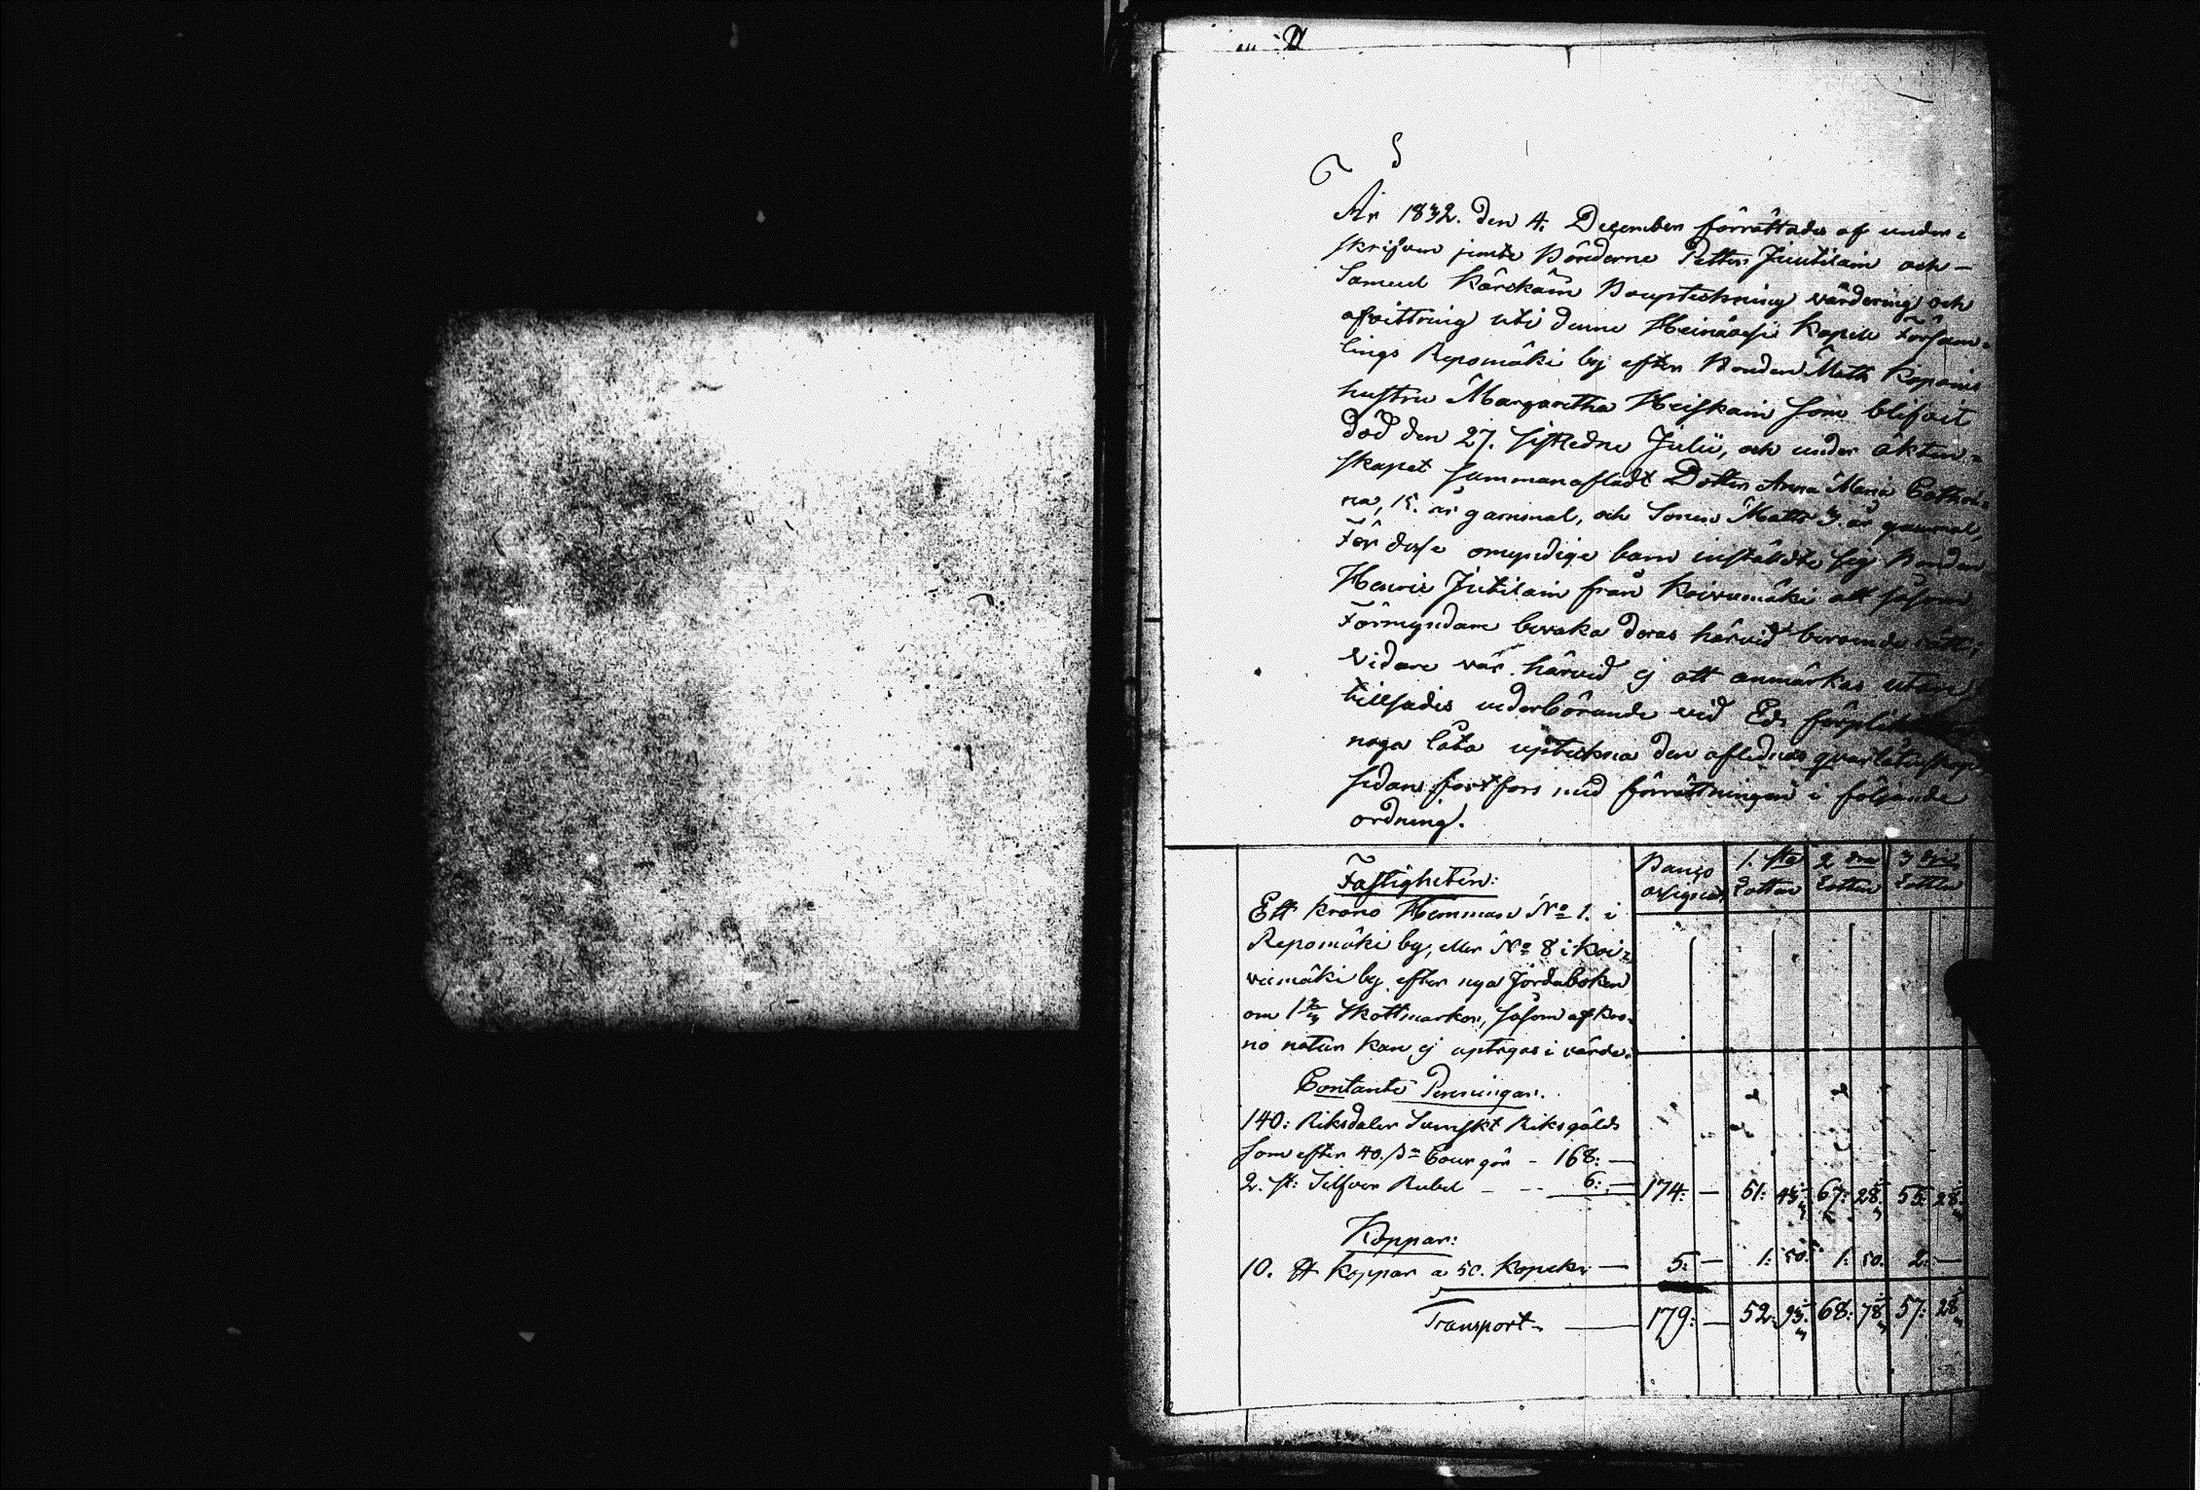 År 1832. den 4. December förrättades af under=
skrifven jemte Bönderne Petter Juutilain och —
Samuel Kärckäin Bouptekning värdering och
afvittring uti denne Heinävesi Kapell Försam=
lings Repomäki by efter Bonden Matts Kopains
hustru Margaretha Heiskain som blifvit
död den 27. sistledne Julii, och under äkten=
skapet sammanaflat Dotter Anna Maria Cathri=
na, 15. år gammal, och Sonen Matts 3. år gammal,
För desse omyndige barn instälte sig Bonden
Henric Jutilain från Koivumäki att såsom
Förmyndare bevaka deras härvid beroende rätt;
Vidare var härvid ej att anmärkas utan
tillsades vederbörande vid Ed
noga låta uptekna den aflednes qvarlåtenskap
sedan fortfors med förrättningen i följande
ordning.
Fastigheten:
Ett krono Hemman No 1. i
Repomäki by, eller No 8 i Koi=
vumäki by efter nya Jordaboken
om 1 2/3 Skattmarkor, såsom af kro=
no natur kan ej uptagas i värde.
Contante Penningar.
140: Riksdaler Svenskt Riksgälds
som efter 40. Cour gör - 168: —
2. st: Silfver Rubel - - 6: — 174: — 51: 67: 55:
Koppar:
10. ℔ Koppar a 50. Kopek — 5: — 1: 50. 1: 50. 2: —
Transport — 179: — 52: 68: 57:
1.sta Lotten
2 dra Lotten
3 dje Lotten